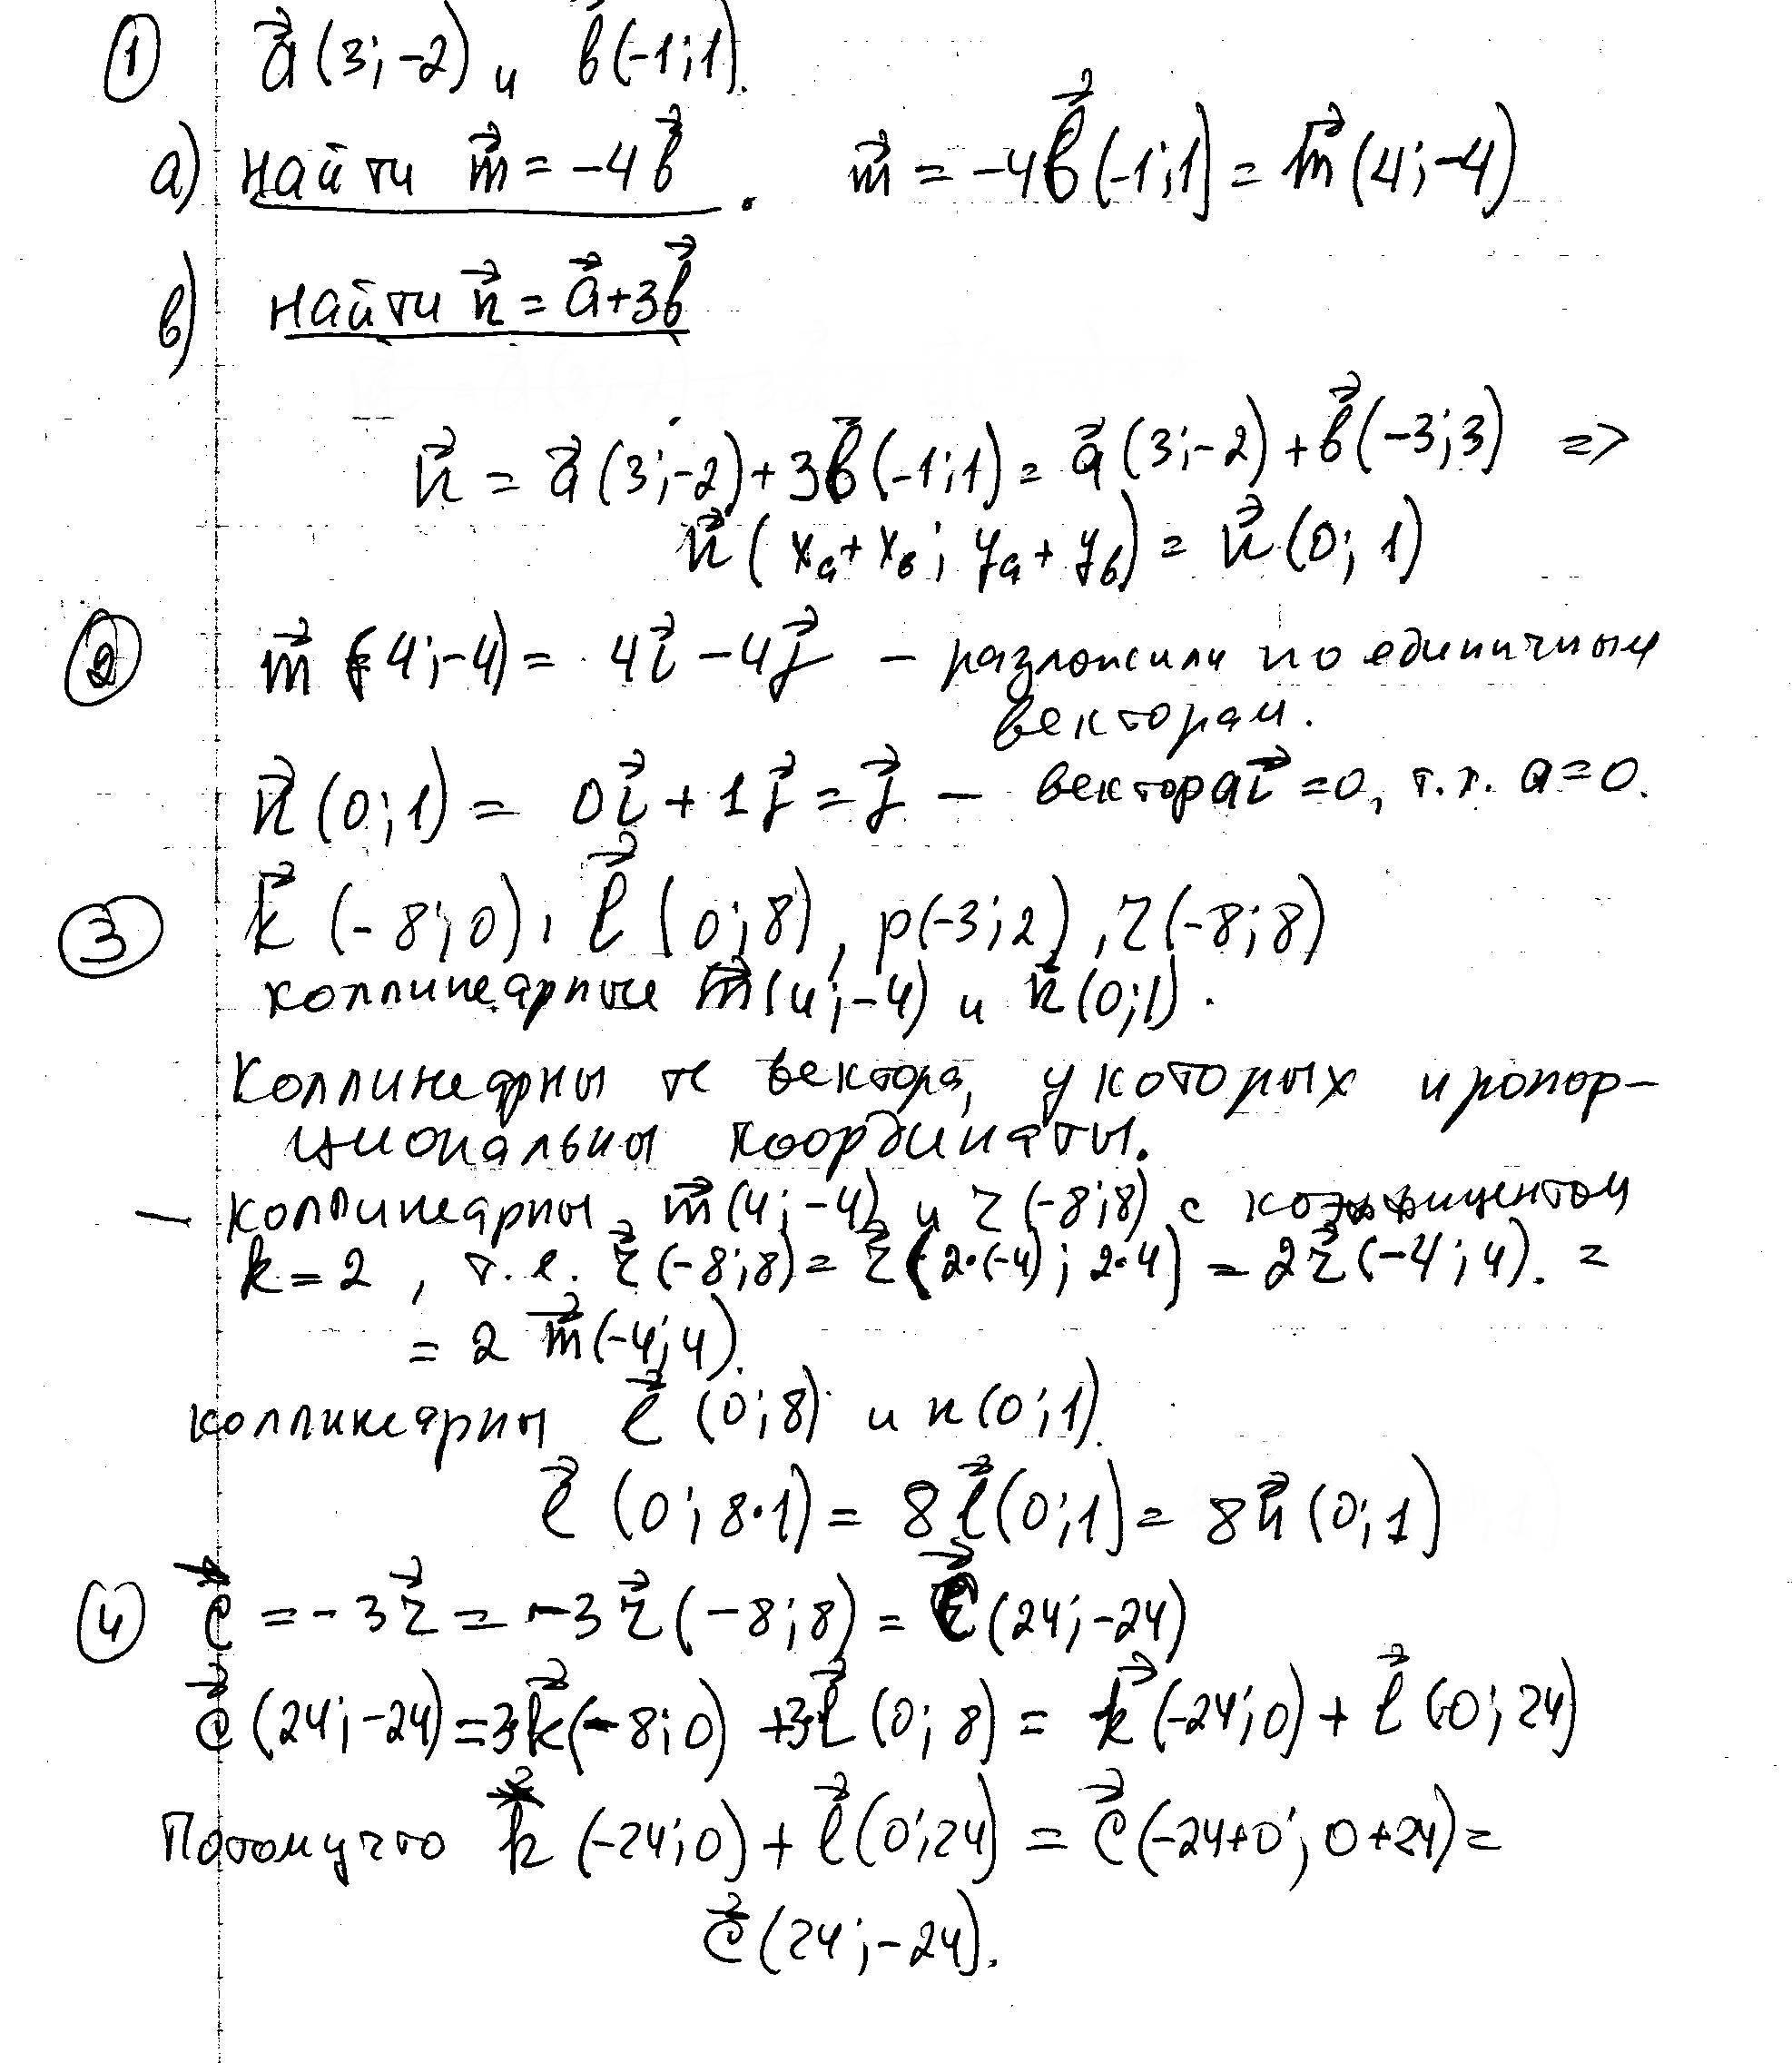 ① a⃗(3;-2) и b⃗(-1;1).
а) найти m⃗ = -4b⃗. m⃗ = -4b⃗(-1;1) = m⃗(4;-4)
в) найти n⃗ = a⃗+3b⃗
n⃗ = a⃗(3;-2)+3b⃗(-1;1) = a⃗(3;-2)+b⃗(-3;3) =>
n⃗(xₐ+x_b; yₐ+y_b) = n⃗(0;1)
② m⃗(4;-4) = 4i⃗ - 4j⃗ - разложили по единичным
векторам.
n⃗(0;1) = 0i⃗ + 1j⃗ = j⃗ - вектор ai⃗ = 0, т.к. a=0.
③ k⃗(-8;0), l⃗(0;8), p(-3;2), r(-8;8)
коллинеарные m⃗(4;-4) и n⃗(0;1).
Коллинеарны те вектора, у которых пропор-
циональны координаты.
- коллинеарны m⃗(4;-4) и r(-8;8) с коэффициентом
k=2, т.е. r⃗(-8;8) = r⃗(2·(-4); 2·4) = 2r⃗(-4;4). =
= 2m⃗(-4;4).
коллинеарны l⃗(0;8) и n(0;1).
l⃗(0; 8·1) = 8l⃗(0;1) = 8n⃗(0;1)
④ c⃗ = -3r⃗ = -3r⃗(-8;8) = c⃗(24;-24)
c⃗(24;-24) = 3k⃗(-8;0) + 3l⃗(0;8) = k⃗(-24;0) + l⃗(0;24)
Потому что k⃗(-24;0) + l⃗(0;24) = c⃗(-24+0; 0+24) =
c⃗(24;-24).